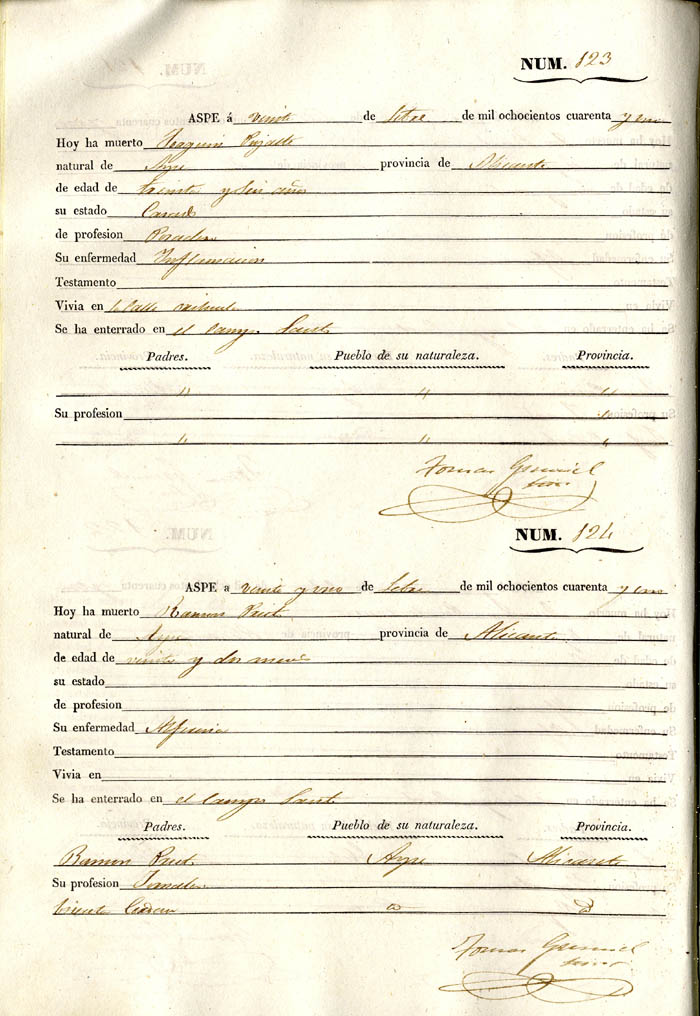 NUM. 123
ASPE á veinte de Stbre de mil ochocientos cuarenta y uno
Hoy ha muerto Joaquin Pujalte
natural de Aspe provincia de Alicante
de edad de treinta y seis años
su estado Casado
de profesion
Su enfermedad Inflamacion
Testamento
Vivia en la Calle
Se ha enterrado en el Campo Santo
Padres. Pueblo de su naturaleza. Provincia.
" " "
Su profesion "
" " "
Tomas
NUM. 124
ASPE a veinte y uno de Sebre de mil ochocientos cuarenta y uno
Hoy ha muerto Ramon Priet
natural de Aspe provincia de Alicante
de edad de veinte y dos meses
su estado
de profesion
Su enfermedad Alferecia
Testamento
Vivia en
Se ha enterrado en el Campo Santo
Padres. Pueblo de su naturaleza. Provincia.
Ramon Priet Aspe Alicante
Su profesion Jornalero
Vicenta
Tomas